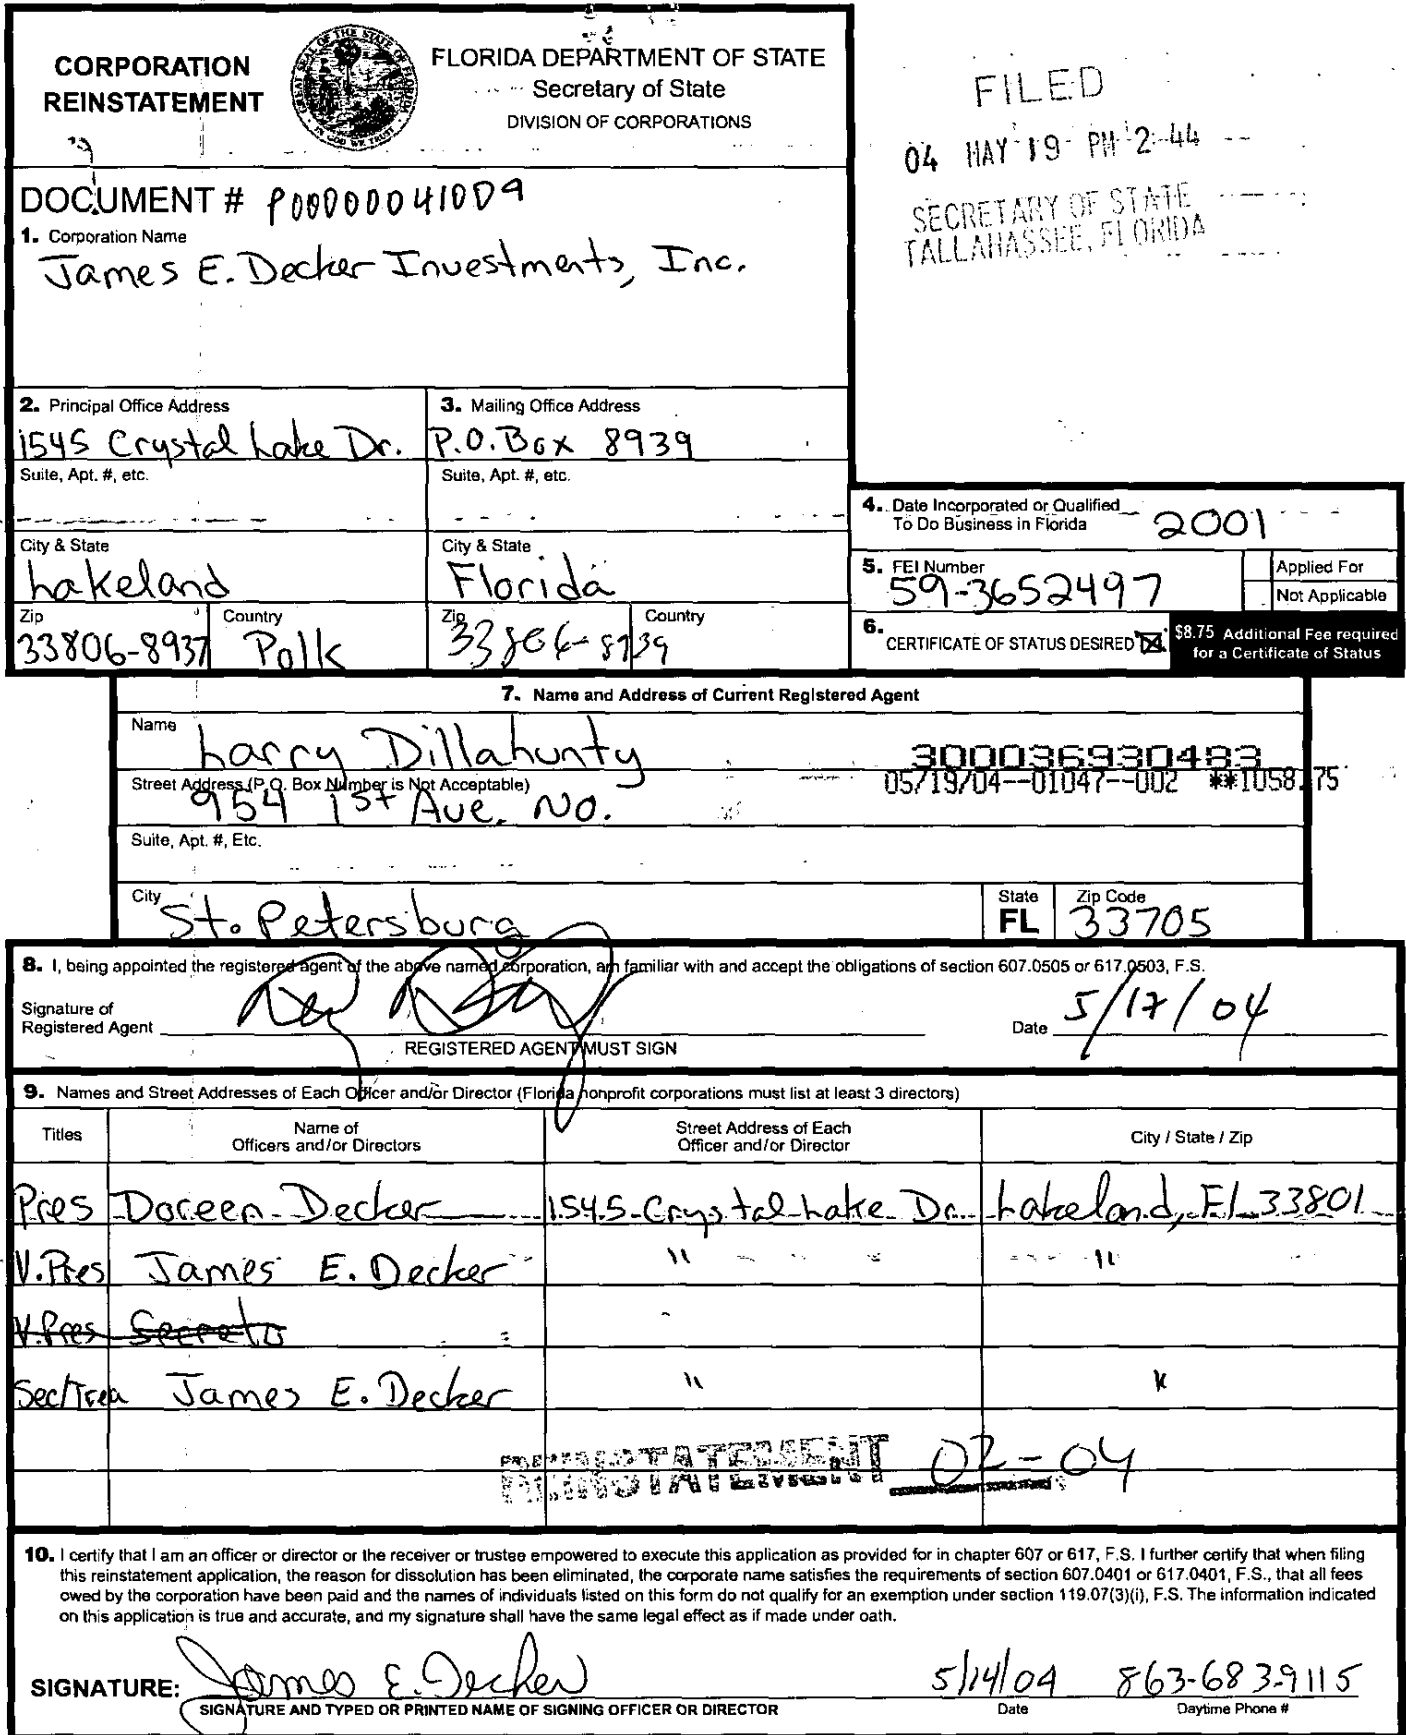 CORPORATION REINSTATEMENT
FLORIDA DEPARTMENT OF STATE
Secretary of State
DIVISION OF CORPORATIONS
FILED
04 MAY 19 PM 2:44
SECRETARY OF STATE
TALLAHASSEE, FLORIDA
DOCUMENT # P00000041009
1. Corporation Name
James E. Decker Investments, Inc.
2. Principal Office Address
1545 Crystal Lake Dr.
Suite, Apt. #, etc.
City & State
Lakeland
Zip
33806-8937
Country
Polk
3. Mailing Office Address
P.O. Box 8939
Suite, Apt. #, etc.
City & State
Florida
Zip
33806-8939
Country
4. Date Incorporated or Qualified To Do Business in Florida 2001
5. FEI Number
59-3652497
Applied For
Not Applicable
6. CERTIFICATE OF STATUS DESIRED
$8.75 Additional Fee required for a Certificate of Status
7. Name and Address of Current Registered Agent
Name
Larry Dillahunty
300036930483
05/19/04--01047--002 **1058.75
Street Address (P.O. Box Number is Not Acceptable)
954 1st Ave. No.
Suite, Apt. #, Etc.
City
St. Petersburg
State
FL
Zip Code
33705
8. I, being appointed the registered agent of the above named corporation, am familiar with and accept the obligations of section 607.0505 or 617.0503, F.S.
Signature of Registered Agent
REGISTERED AGENT MUST SIGN
Date 5/17/04
9. Names and Street Addresses of Each Officer and/or Director (Florida nonprofit corporations must list at least 3 directors)
Titles
Name of Officers and/or Directors
Street Address of Each Officer and/or Director
City / State / Zip
Pres Doreen Decker 1545 Crystal Lake Dr. Lakeland, Fl 33801
V.Pres James E. Decker " "
V.Pres
Sec/Trea James E. Decker " "
REINSTATEMENT 02-04
10. I certify that I am an officer or director or the receiver or trustee empowered to execute this application as provided for in chapter 607 or 617, F.S. I further certify that when filing
this reinstatement application, the reason for dissolution has been eliminated, the corporate name satisfies the requirements of section 607.0401 or 617.0401, F.S., that all fees
owed by the corporation have been paid and the names of individuals listed on this form do not qualify for an exemption under section 119.07(3)(i), F.S. The information indicated
on this application is true and accurate, and my signature shall have the same legal effect as if made under oath.
SIGNATURE: James E. Decker 5/14/04 863-683-9115
SIGNATURE AND TYPED OR PRINTED NAME OF SIGNING OFFICER OR DIRECTOR Date Daytime Phone #